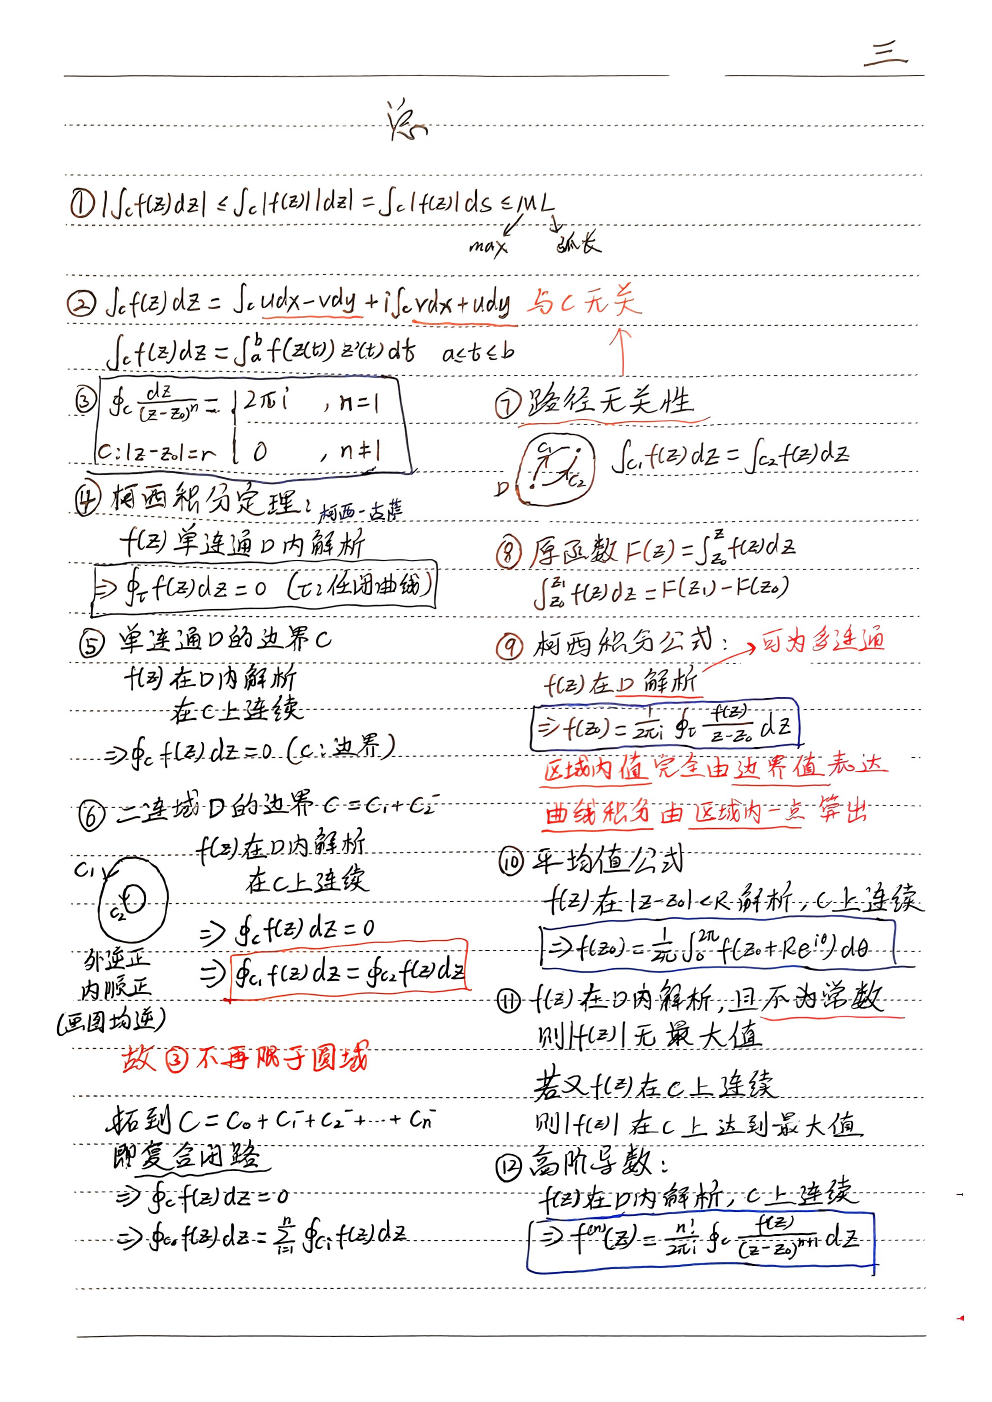 三
总
① |∫_C f(z)dz| ≤ ∫_C |f(z)||dz| = ∫_C |f(z)| ds ≤ ML
max 弧长
② ∫_C f(z)dz = ∫_C udx-vdy + i∫_C vdx+udy 与C无关
∫_C f(z)dz = ∫_a^b f(z(t)) z'(t) dt a≤t≤b
③ ∮_C dz/(z-z₀)ⁿ = { 2πi , n=1
C:|z-z₀|=r 0 , n≠1
④ 柯西积分定理: 柯西-古萨
f(z)单连通D内解析
⇒ ∮_τ f(z)dz = 0 (τ:任闭曲线)
⑤ 单连通D的边界C
f(z)在D内解析
在C上连续
⇒ ∮_C f(z)dz = 0 (C:边界)
⑥ 二连域D的边界 C = C₁+C₂⁻
f(z)在D内解析
在C上连续
C₁
C₂
⇒ ∮_C f(z)dz = 0
⇒ ∮_C₁ f(z)dz = ∮_C₂ f(z)dz
外逆正
内顺正
(画图均逆)
故③不再限于圆域
拓到 C = C₀+C₁⁻+C₂⁻+…+Cₙ⁻
即复合闭路
⇒ ∮_C f(z)dz = 0
⇒ ∮_C₀ f(z)dz = Σ_{i=1}^n ∮_Cᵢ f(z)dz
⑦ 路径无关性
C₁
C₂
D
∫_C₁ f(z)dz = ∫_C₂ f(z)dz
⑧ 原函数 F(z) = ∫_{z₀}^z f(z)dz
∫_{z₀}^{z₁} f(z)dz = F(z₁)-F(z₀)
⑨ 柯西积分公式: 可为多连通
f(z)在D解析
⇒ f(z₀) = 1/2πi ∮_τ f(z)/(z-z₀) dz
区域内值完全由边界值表达
曲线积分由区域内一点算出
⑩ 平均值公式
f(z)在|z-z₀|<R解析, C上连续
⇒ f(z₀) = 1/2π ∫_0^{2π} f(z₀+Re^{iθ}) dθ
⑪ f(z)在D内解析,且不为常数
则|f(z)|无最大值
若又f(z)在C上连续
则|f(z)|在C上达到最大值
⑫ 高阶导数:
f(z)在D内解析, C上连续
⇒ f⁽ⁿ⁾(z) = n!/2πi ∮_C f(z)/(z-z₀)ⁿ⁺¹ dz